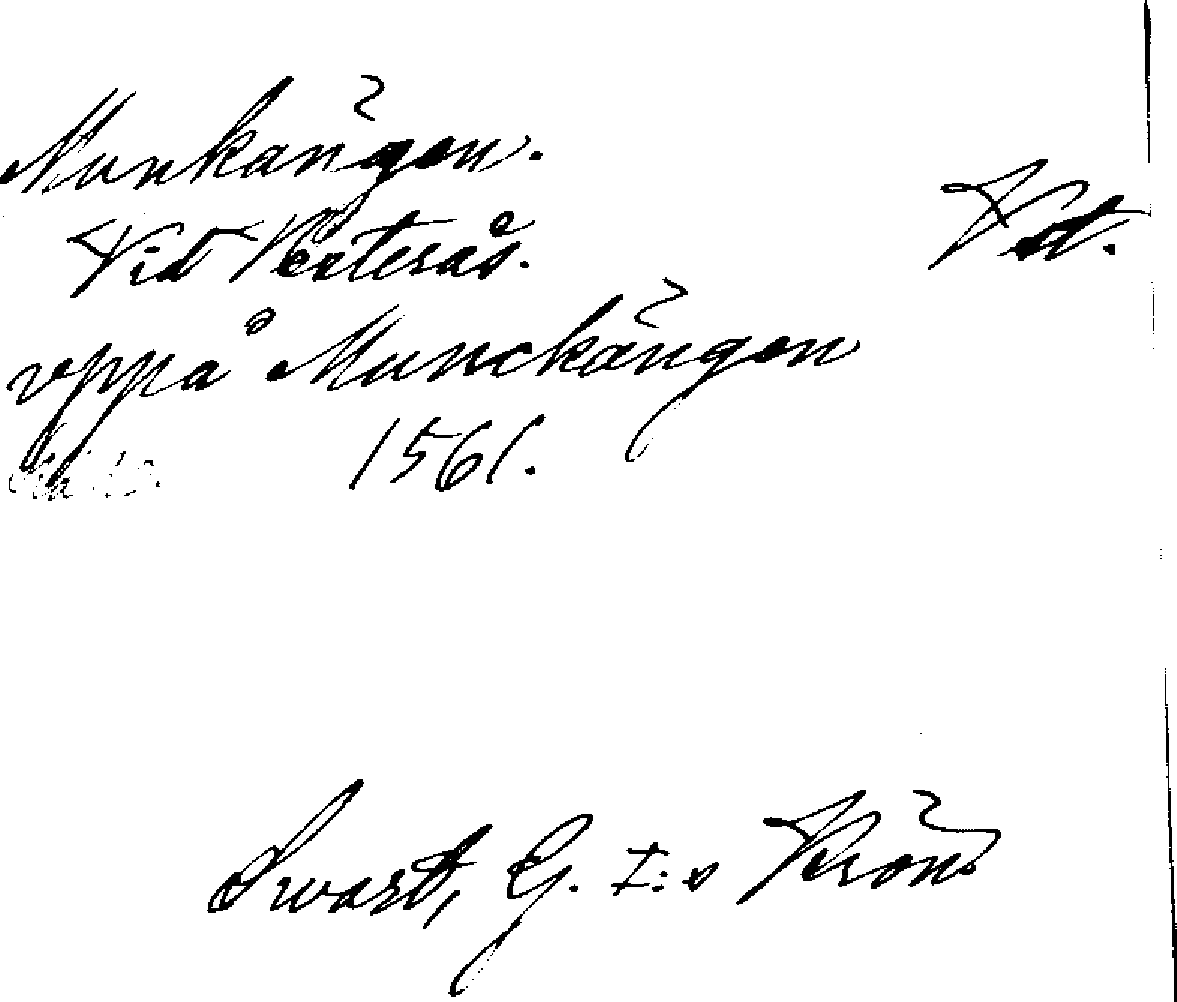 Munkängen. Vstm.
Vid Västerås.
vppå Munckängen
1561.
Swart, G. I:s Krön.